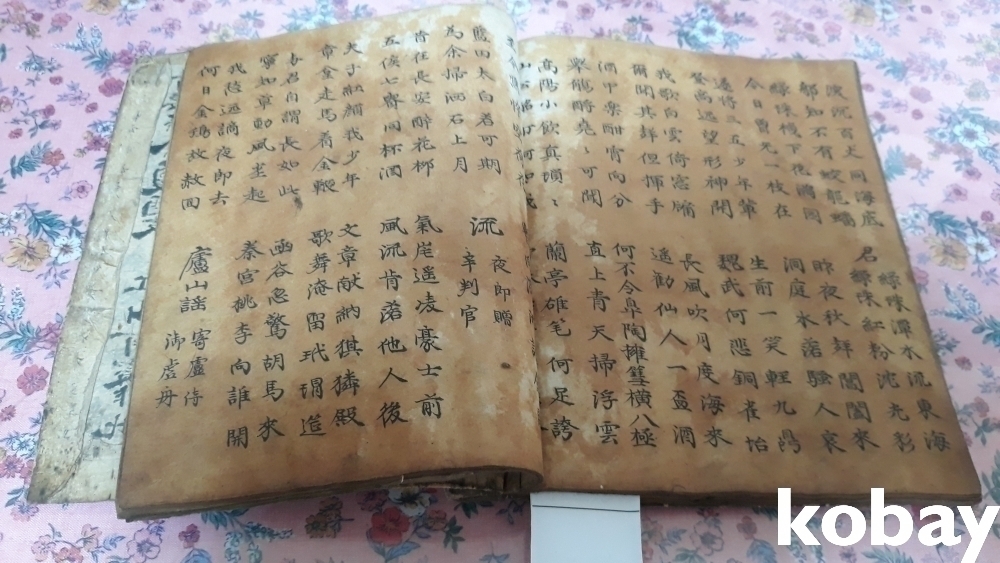 深沉百丈洞海底
那知不有蛟龍蟠
綠珠潭水流東海
綠珠紅粉沈光彩
綠珠樓下花滿園
今日曾无一枝在
昨夜秋声閶闔來
洞庭水落騷人哀
遂将三五少年輩
登高遠望形神開
生前一笑輕九鼎
魏武何悲銅雀怡
我歌白雲倚窓牖
爾聞其声但揮手
長風吹月度海來
遥勧仙人一盃酒
酒中樂酣宵向分
举觴酹尭〻可聞
何不令皐陶擁篲橫八極
直上青天掃浮雲
高陽小飲真瑣〻
蘭亭雄笔何足誇
藍田太白若可期
為余掃洒石上月
流夜郎贈
辛判官
昔在長安醉花柳
五侯七貴同杯酒
氣岸遥凌豪士前
風流肯落他人後
夫子紅顔我少年
章台走馬着金鞭
文章献納猉獜殿
歌舞淹留玳瑁筵
与君自謂長如此
寧知草動風塵起
函谷忽驚胡馬來
秦宮桃李向誰開
我愁遠謫夜郎去
何日金鷄放赦回
廬山謠 寄盧侍
御虛舟
kobay